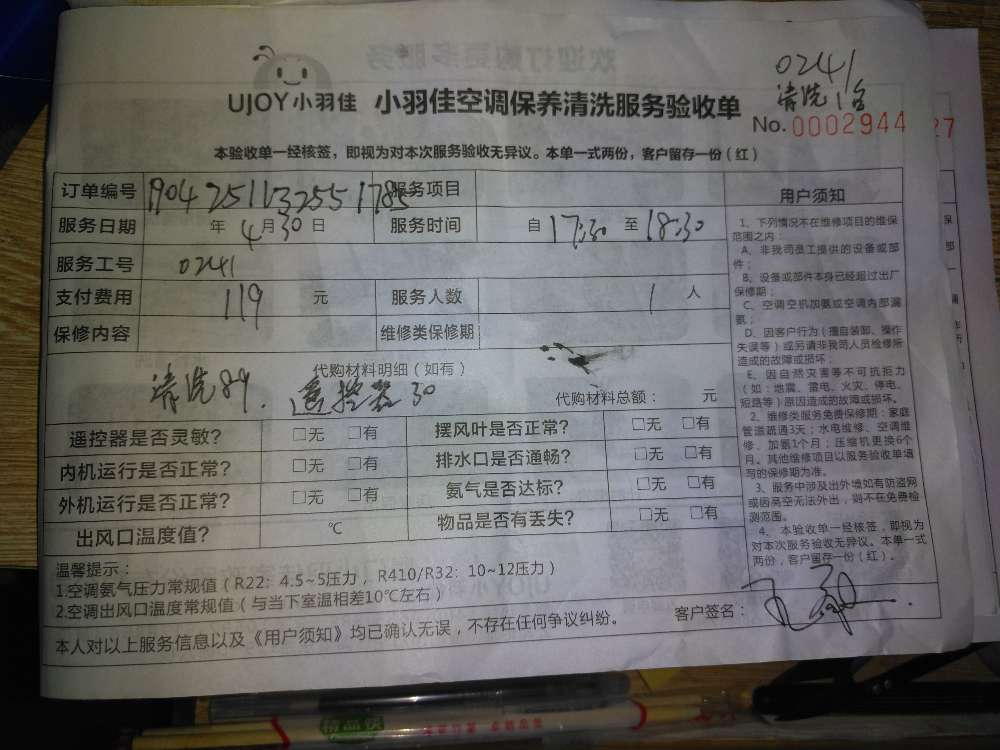 0241
清洗1台
UJOY小羽佳 小羽佳空调保养清洗服务验收单
No.0002944
27
本验收单一经核签，即视为对本次服务验收无异议。本单一式两份，客户留存一份（红）
订单编号 1904251132551785 服务项目
服务日期 年4月30日 服务时间 自17:30至18:30
服务工号 0241
支付费用 119元 服务人数 1人
保修内容 维修类保修期
代购材料明细（如有）
清洗89. 遥控器30
代购材料总额： 元
遥控器是否灵敏？ □无 □有 摆风叶是否正常？ □无 □有
内机运行是否正常？ □无 □有 排水口是否通畅？ □无 □有
外机运行是否正常？ □无 □有 氨气是否达标？ □无 □有
出风口温度值？ ℃ 物品是否有丢失？ □无 □有
用户须知
1、下列情况不在维修项目的维保
范围之内：
A、非我司员工提供的设备或部
件；
B、设备或部件本身已经超过出厂
保修期；
C、空调空机加氨或空调内部漏
氨；
D、因客户行为（擅自装卸、操作
失误等）或另请非我司人员检修所
造成的故障或损坏；
E、因自然灾害等不可抗拒力
（如：地震、雷电、火灾、停电、
短路等）原因造成的故障或损坏。
2、维修类服务免费保修期：家庭
管道疏通3天；水电维修、空调维
修、加氨1个月；压缩机更换6个
月。其他维修项目以服务验收单填
写的保修期为准。
3、服务中涉及出外墙如有防盗网
或因高空无法外出，则不在免费检
测范围。
4、本验收单一经核签，即视为
对本次服务验收无异议。本单一式
两份，客户留存一份（红）。
温馨提示：
1.空调氨气压力常规值（R22：4.5~5压力，R410/R32：10~12压力）
2.空调出风口温度常规值（与当下室温相差10℃左右）
客户签名：
本人对以上服务信息以及《用户须知》均已确认无误，不存在任何争议纠纷。